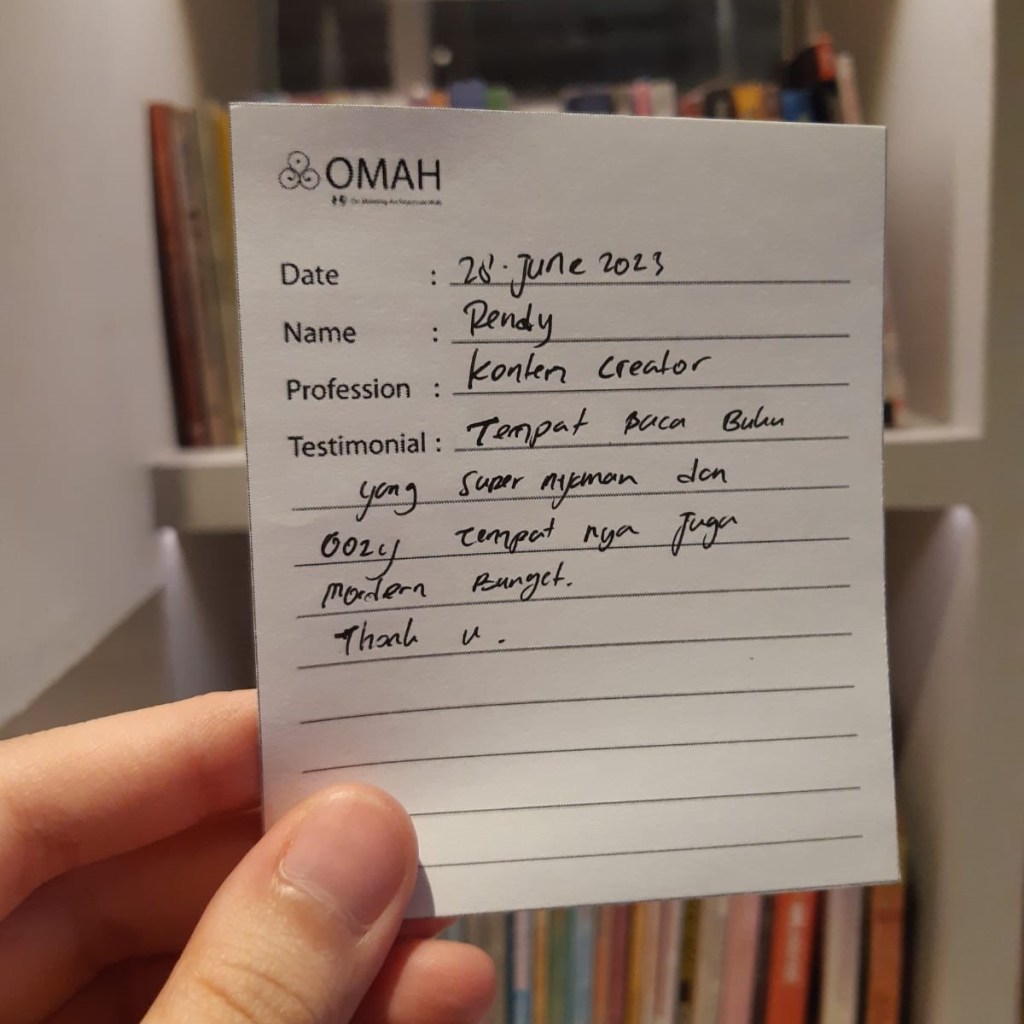 OMAH
Date : 28 June 2023
Name : Rendy
Profession : Konten Creator
Testimonial : Tempat Baca Buku
yang super nyaman dan
Cozy Tempat nya Juga
Modern Banget.
Thank u.